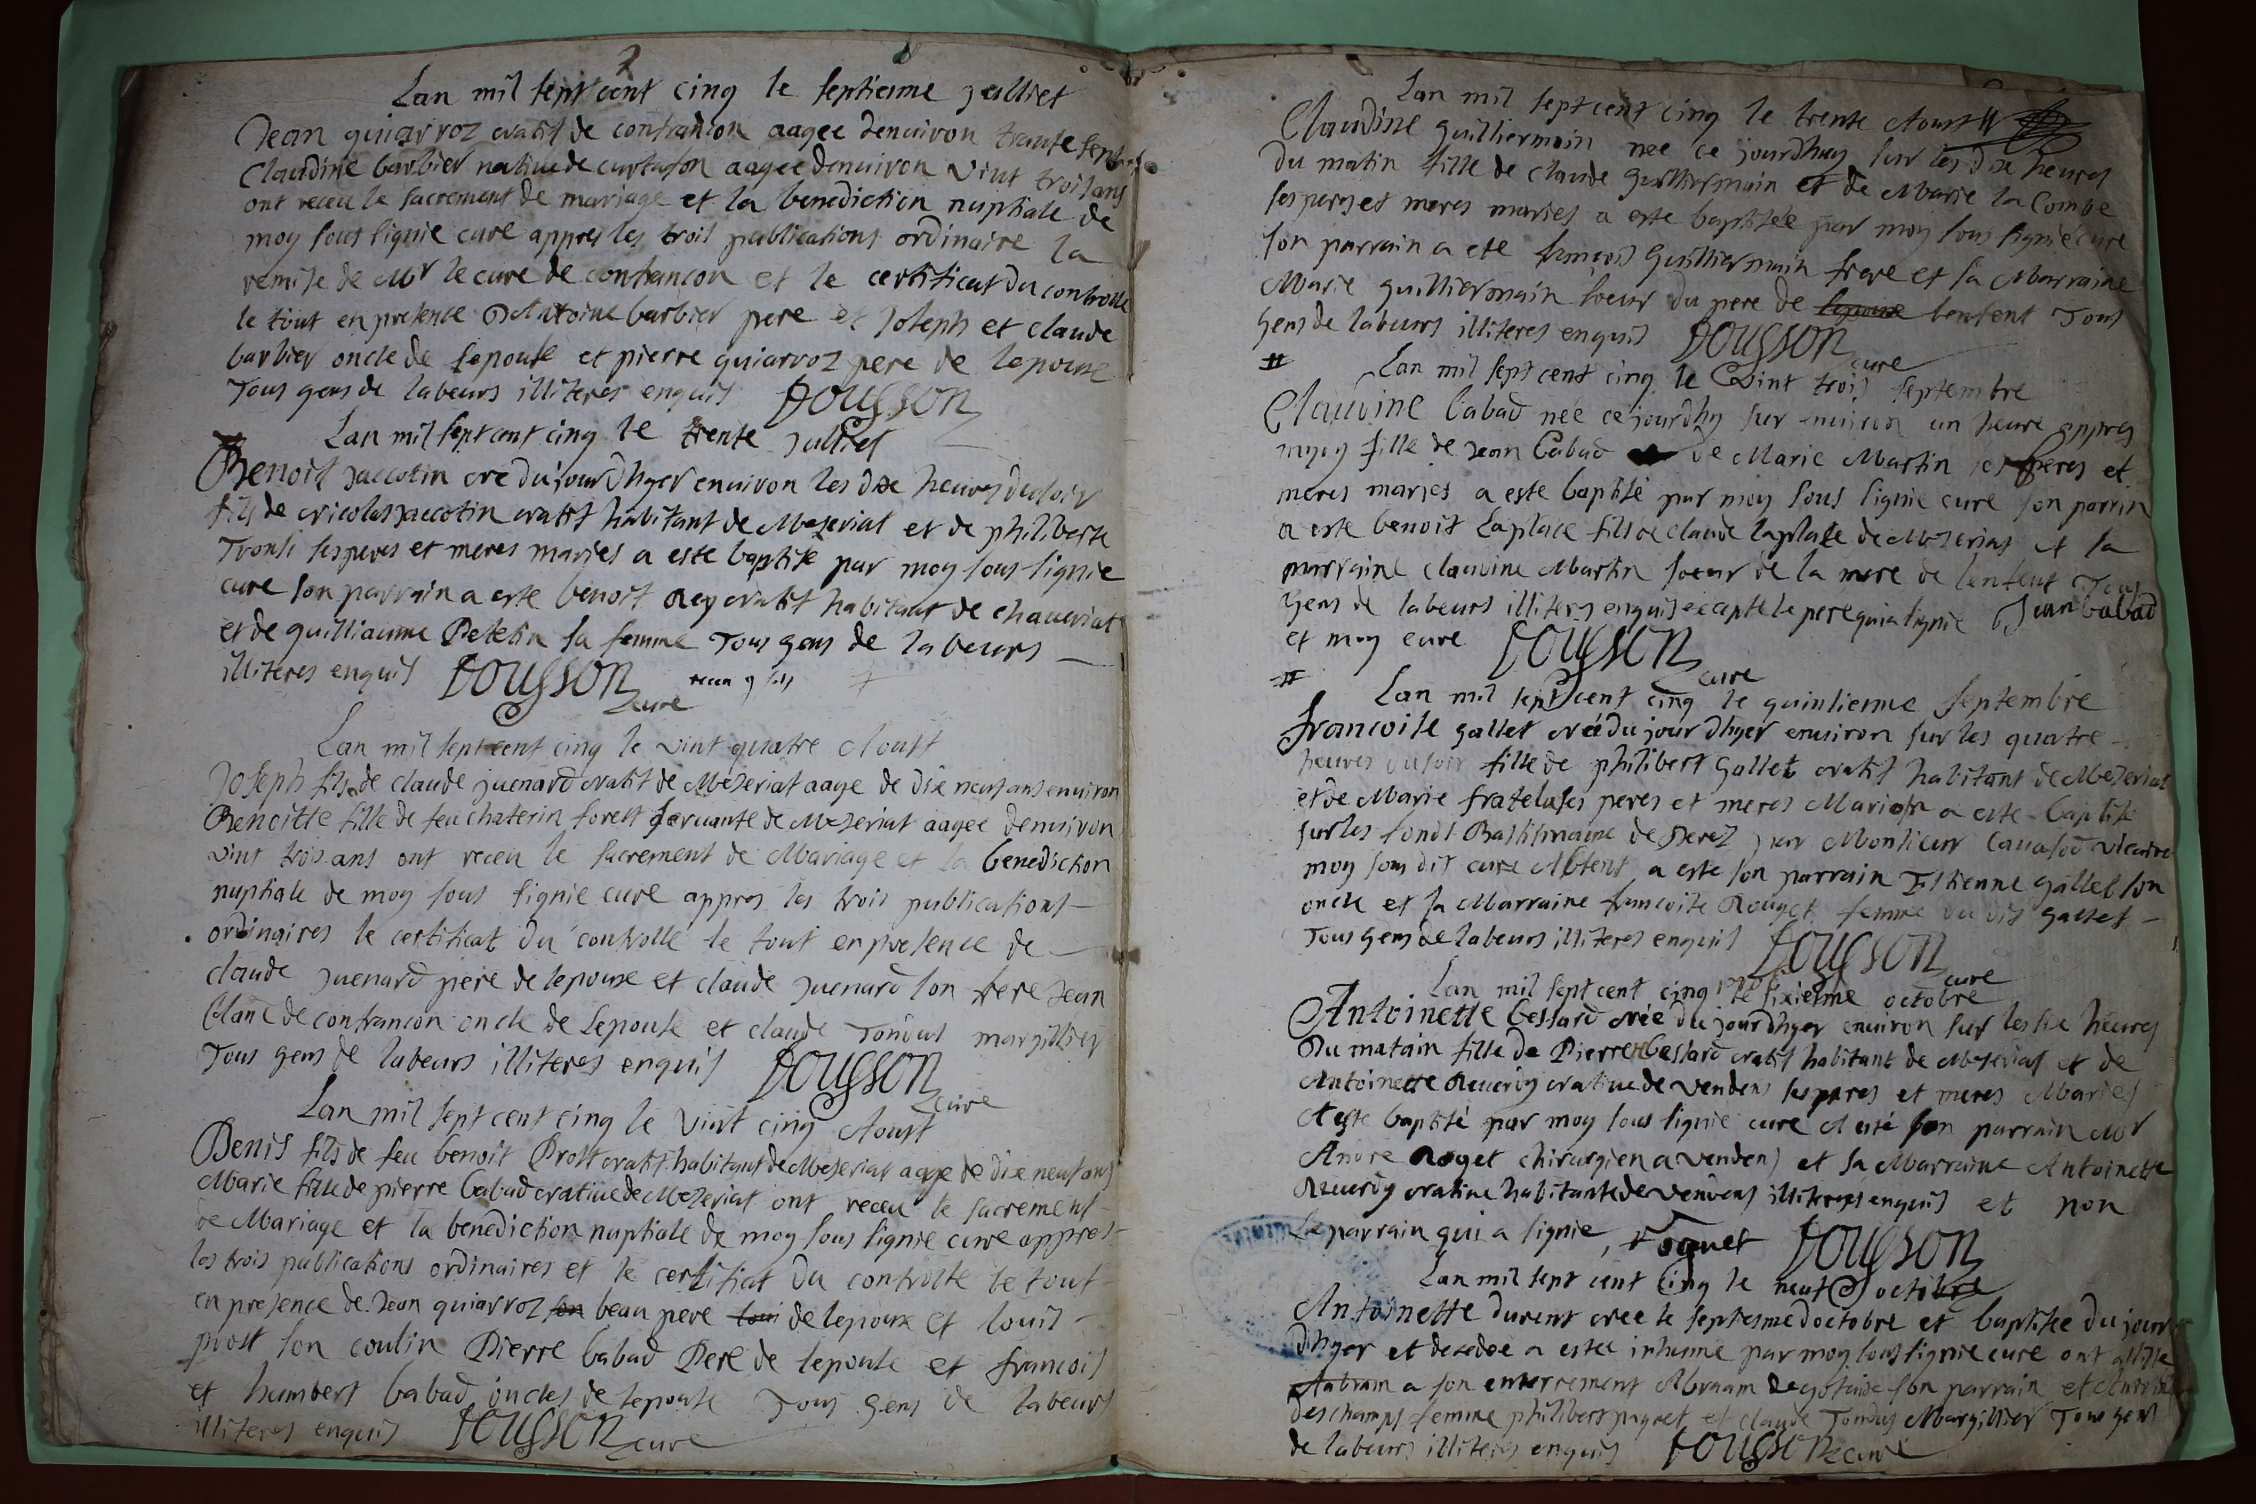 2
Lan mil sept cent cinq le septiesme juilliet
Jean guiarroz natif de confrancon aagee denuiron trante sept ans
Claudine barbier natiue de curtafon aagee denuiron vint trois ans
ont receu le sacrement de mariage et la benediction nuptiale de
moy sous signie cure appres les trois publications ordinaire la
remise de Mr le cure de confrancon et le certificat du controlle
le tout en presence dAntoine barbier pere et Joseph et claude
barbier oncle de lepouse et pierre guiarroz pere de lepoux
Tous gens de labeurs illiteres enquis POUSSON
Lan mil sept cent cinq le trente julliet
Benoist Jaccotin né du jourdhyer enuiron les dix heures du soir
fils de nicolas Jaccotin natif habitant de Meseriat et de philiberte
Tronsi ses peres et meres maries a este baptise par moy sous signie
cure son parrain a este benoit Rey natif habitant de chaueriat
et de guilliaume Peletin sa femme Tous gens de labeurs
illiteres enquis POUSSON cure
Lan mil sept cent cinq le vint quatre Aoust
Joseph fils de claude Juenard natif de Meseriat aage de dix neuf ans enuiron
Benoitte fille de feu chaterin forest seruante de Meseriat aagee denuiron
vint trois ans ont receu le sacrement de Mariage et la benediction
nuptiale de moy sous signie cure appres les trois publications
ordinaires le certificat du controlle le tout en presence de
claude Juenard pere de lepoux et claude Juenard son frere Jean
Blanc de confrancon oncle de lepouse et claude Tondut margillier
Tous gens de labeurs illiteres enquis POUSSON cure
Lan mil sept cent cinq le vint cinq Aoust
Denis fils de feu benoit Prost natif habitant de Meseriat aage de dix neuf ans
Marie fille de pierre babad natiue de Mezeriat ont receu le sacrement
de Mariage et la benediction nuptiale de moy sous signie cure appres
les trois publications ordinaires et le certificat du controlle le tout
en presence de Jean guiarroz son beau pere de lepoux et louis
prost son cousin Pierre babad Pere de lepouse et francois
et humbert babad oncles de lepouse Tous gens de labeurs
illiteres enquis POUSSON cure
Lan mil sept cent cinq le trente Aoust
Claudine guilliermain née ce jourdhuy sur les dix heures
du matin fille de claude guilliermain et de Marie la Combe
ses peres et meres maries a este baptisée par moy sous signie cure
son parrain a ete francois guilliermain frere et sa Marraine
Marie guilliermain soeur du pere de lenfent Tous
gens de labeurs illiteres enquis POUSSON cure
Lan mil sept cent cinq le vint trois septembre
Claudine babad née ce jourdhy sur enuiron un heure appres
myey fille de Jean babad de Marie Martin ses peres et
meres maries a este baptisé par moy sous signie cure son parrin
a este benoit Laplace fils de claude laplace de Meserias et sa
marraine claudine Martin soeur de la mere de lenfent Tous
gens de labeurs illiters enquis excepte le pere qui a signie Jean babad
et moy cure POUSSON cure
Lan mil sept cent cinq le quinsieme septembre
francoise gallet née du jour dhyer enuiron sur les quatre
heures du soir fille de philibert gallet natif habitant de Mezeriat
et de Marie fratela ses peres et meres Maries a este baptisé
sur les fonds Baptismaux de Perez par Monsieur Cauasod vicaire
moy sous dit cure Absent a este son parrain Estienne gallet son
oncle et sa Marraine francoise Rouget femme du dit gallet
Tous gens de labeurs illiteres enquis POUSSON cure
Lan mil sept cent cinq le sixiesme octobre
Antoinette bessard née du jourdhyer enuiron sur les six heures
Du matain fille de Pierre bessard natif habitant de Meserias et de
Antoinette Reuerdy natiue de vendens ses peres et meres Maries
A este baptisé par moy sous signie cure A esté son parrain Mr
Andre Roget chirurgien a vendens et sa Marraine Antoinette
Reuerdy natiue habitante de vendens illiteres enquis et non
Le parrain qui a signie, Roguet POUSSON
Lan mil sept cent cinq le neuf octobre
Antoinette durent nee le septiesme doctobre et baptisée du jour
dhyer et decedee a estee inhumé par moy sous signie cure ont assisté
Aabram a son enterrement Abraam son parrain et Antoinette
deschamps femme philibert piquet et claude Tondus Margillier Tous gens
de labeurs illiteres enquis POUSSON cure